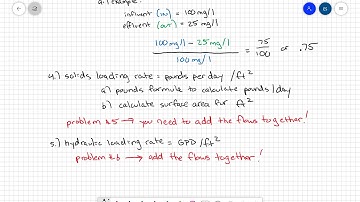 example:
influent (in) = 100 mg/l
effluent (out) = 25 mg/l
100 mg/l - 25 mg/l
100 mg/l
= 75
100
or .75
4.) solids loading rate = pounds per day /ft²
a) pounds formula to calculate pounds/day
b) calculate surface area for ft²
problem #5 → you need to add the flows together!
5.) Hydraulic loading rate = GPD/ft²
problem #6 → add the flows together!